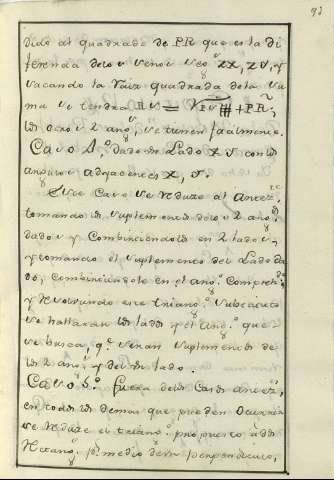 93
dido al quadrado de PR que es la di
ferencia de los senos vso ZX, ZV, y
sacando la raiz quadrada de la su
ma se tendra RV = V PR;
los otros 2 ang.s se tienen facilmente.
Caso 4.º dado un Lado XV con los
angulos adjacentes X, V.
Este Caso se reduce al Antec.te
tomando los suplementos de los 2 ang.s
dados y Combinandolos en 2 lados,
y tomando el suplemento del Lado da
do, combinandole en el ang.º Compreh.do
y resolviendo este triang.º
se hallaran los lados y el ang.º que
se busca, q.e seran suplementos de
los 2 ang.s y del lado.
Caso 5.º fuera de los Casos antec.tes
en todos los demas que pueden ocurrir
se reduce el triang.º propuesto à dos
Rectang.s p.r medio de un perpendiculo,